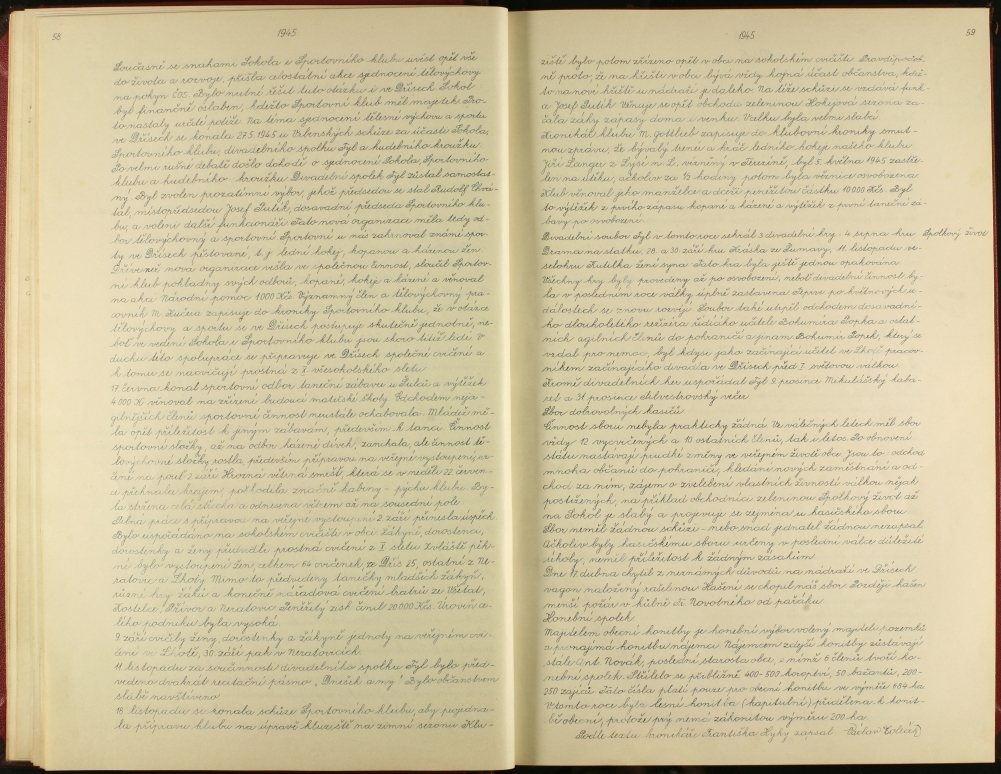 58
1945
Současně se snahami Sokola i Sportovního klubu uvést opět vše
do života a rozvoje, přišla celostátní akce sjednocení tělovýchovy
na pokyn ČOS. Bylo nutné řešit tuto otázku i ve Dřísech. Sokol
byl finančně osláben, kdežto Sportovní klub měl majetek. Pro-
to nastaly určité potíže. Na téma sjednocení tělesné výchovy a sportu
ve Dřísech se konala 27.5.1945 u Vrbenských schůze za účasti Sokola,
Sportovního klubu, divadelního spolku Tyl a hudebního kroužku.
Po velmi rušné debatě došlo dohodě o sjednocení Sokola, Sportovního
klubu a hudebního kroužku. Divadelní spolek Tyl zůstal samostat-
ný. Byl zvolen prozatímní výbor, jehož předsedou se stal Rudolf Chrá-
tal, místopředsedou Josef Putík, dosavadní předseda Sportovního klu-
bu, a voleni další funkcionáři. Tato nová organizace měla tedy od-
bor tělovýchovný a sportovní. Sportovní u nás zahrnoval známé spor-
ty ve Dřísech pěstované, t.j. lední hokej, kopanou a házenou žen.
Dříve než nová organizace vešla ve společnou činnost, sloučil Sportov-
ní klub pokladny svých odborů, kopané, hokeje a házené a věnoval
na akci Národní pomoc 1000 Kčs. Významný člen a tělovýchovný pra-
covník M. Kučera zapisuje do kroniky Sportovního klubu, že v otázce
tělovýchovy a sportu se ve Dřísech postupuje skutečně jednotně, ne-
boť ve vedení Sokola i Sportovního klubu jsou skoro titíž lidé. V
duchu této spolupráce se připravuje ve Dřísech společné cvičení a
k tomu se nacvičují prostná z X. všesokolského sletu.
17. června konal sportovní odbor taneční zábavu u Šulců a výtěžek
4.000 K věnoval na zřízení budoucí mateřské školy. Odchodem neja-
gilnějších členů sportovní činnost neustále ochabovala. Mládež mě-
la opět příležitost k jiným zábavám, především k tanci. Činnost
sportovní složky, až na odbor házené dívek, zanikala, ale činnost tě-
lovýchovné složky rostla, především přípravou na veřejné vystoupení, ur-
čené na pouť 2. září. Hrozná větrná smršť, která se v neděli 22. červen-
ce přehnala krajem, poškodila značně kabiny - pýchu klubu. By-
la stržena celá střecha a odnesena větrem až na sousední pole.
Pilná práce s přípravou na veřejné vystoupení 2. září přinesla úspěch.
Bylo uspořádáno na sokolském cvičišti v obci. Žákyně, dorostenci,
dorostenky a ženy předvedli prostná cvičení z X. sletu. Zvláště pěk-
né bylo vystoupení žen, celkem 64 cvičenek, ze Dřís 25, ostatní z Ne-
ratovic a Lhoty. Mimo to předvedeny tanečky mladších žákyň,
různé hry žáků a konečně nářaďová cvičení bratří ze Všetat,
Kostelce, Přívor a Neratovic. Peněžitý zisk činil 20.000 Kčs. Úroveň ce-
lého podniku byla vysoká.
9. září cvičily ženy, dorostenky a žákyně jednoty na veřejném cvi-
čení ve Lhotě, 30. září pak v Neratovicích.
11. listopadu za součinnosti divadelního spolku Tyl bylo před-
vedeno dvakrát recitační pásmo „Dnešek a my“. Bylo občanstvem
slabě navštíveno.
18. listopadu se konala schůze Sportovního klubu, aby pojedna-
la přípravu klubu na úpravě kluziště na zimní sezonu. Klu-
59
1945
ziště bylo potom zřízeno opět v obci na sokolském cvičišti. Pravděpodob-
ně proto, že na hřiště v obci bývá vždy hojná účast občanstva, kdež-
to na nové hřiště u nádraží je daleko. Na téže schůzi se vzdává funk-
ce Josef Putík. Věnuje se opět obchodu zeleninou. Hokejová sezona za-
čala záhy zápasy doma i venku. Vcelku byla velmi slabá.
Kronikář klubu M. Gottlieb zapisuje do klubovní kroniky smut-
nou zprávu, že bývalý trenér a hráč ledního hokeje našeho klubu
Jiří Langer z Lysé n. L., vězněný v Terezíně, byl 5. května 1945 zastře-
len na útěku, ačkoliv za ½ hodiny potom byla věznice osvobozena.
Klub věnoval jeho manželce a dceři peněžitou částku 10000 Kčs. Byl
to výtěžek z prvého zápasu kopané a házené a výtěžek z první taneční zá-
bavy po osvobození.
Divadelní soubor Tyl v tomto roce sehrál 3 divadelní hry: 4. srpna hru Spolkový život
Drama na statku, 28. a 30. září hru Kráska ze Šumavy, 18. listopadu ve-
selohru Kutílka žení syna. Tato hra byla ještě jednou opakována.
Všechny hry byly provedeny až po osvobození, neboť divadelní činnost by-
la v posledním roce války úplně zastavena. Teprve po květnových u-
dálostech se znovu rozvíjí. Soubor také utrpěl odchodem dosavadní-
ho dlouholetého režiséra řídícího učitele Bohumíra Popka a ostat-
ních agilních členů do pohraničí a jinam. Bohumír Popek, který se
vzdal pro nemoc, byl kdysi jako začínající učitel ve Lhotě pracov-
níkem začínajícího divadla ve Dřísech před I. světovou válkou.
Kromě divadelních her uspořádal Tyl 9. prosince Mikulášský kaba-
ret a 31. prosince Silvestrovský večer.
Sbor dobrovolných hasičů
Činnost sboru nebyla prakticky žádná. Ve válečných letech měl sbor
vždy 12 vycvičených a 10 ostatních členů, tak i letos. Po obnovení
státu nastávají prudké změny ve veřejném životě obce. Jsou to: odchod
mnoha občanů do pohraničí, hledání nových zaměstnání a od-
chod za ním, zájem o zvelebení vlastních živností válkou nějak
postižených, na příklad obchodníci zeleninou. Spolkový život až
na Sokol je slabý a projevuje se zejména u hasičského sboru.
Sbor neměl žádnou schůzi - nebo snad jednatel žádnou nezapsal.
Ačkoliv byly hasičskému sboru určeny v poslední válce důležité
úkoly, neměl příležitost k žádným zásahům.
Dne 17. dubna chytil z neznámých důvodů na nádraží ve Dřísech
vagon naložený rašelinou. Hašení se chopil náš sbor. Později hašen
menší požár v kůlně Novotného od pařáku.
Honební spolek
Majitelem obecní honitby je honební výbor volený majiteli pozemků
a pronajímá honitbu nájemci. Nájemcem zdejší honitby zůstávají
stále Ant. Novák, poslední starosta obce, s nímž 6 členů tvoří ho-
nební spolek. Střílelo se přibližně 400-500 koroptví, 50 bažantů, 200-
250 zajíců. Tato čísla platí pouze pro obecní honitbu ve výměře 684 ha.
V tomto roce byla lesní honitba (kapitulní) přidělena k honit-
bě obecní, protože prý nemá zákonitou výměru 200 ha.
Podle textu kronikáře Františka Hyky zapsal Václav